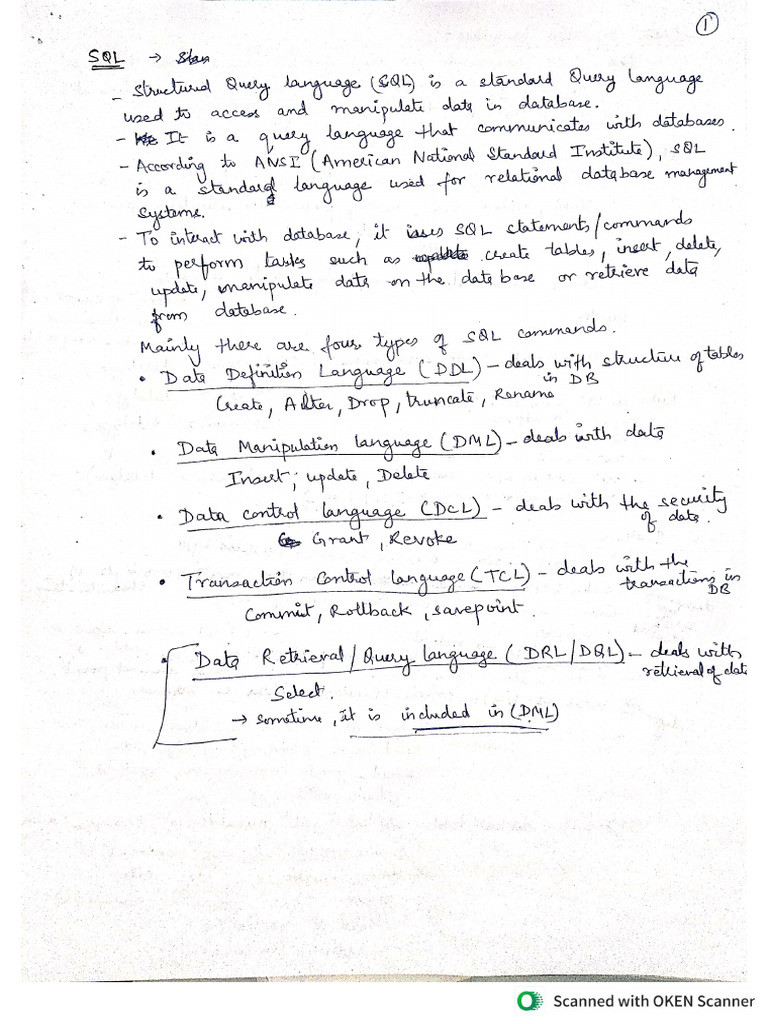 1
SQL →
- Structured Query language (SQL) is a standard Query language
used to access and manipulate data in database.
- It is a query language that communicates with databases.
- According to ANSI (American National Standard Institute), SQL
is a standard language used for relational database management
systems.
- To interact with database, it uses SQL statements/commands
to perform tasks such as create tables, insert, delete,
update, manipulate data on the data base or retrieve data
from database.
Mainly there are four types of SQL commands.
• Data Definition Language (DDL) – deals with structure of tables
in DB
Create, Alter, Drop, truncate, Rename
• Data Manipulation language (DML) – deals with data
Insert, update, Delete
• Data control language (DCL) – deals with the security
of data.
Grant, Revoke
• Transaction control language (TCL) – deals with the
transactions in
DB
Commit, Rollback, savepoint.
• Data Retrieval/Query language (DRL/DQL) – deals with
retrieval of data
Select.
→ sometime, it is included in (DML)
Scanned with OKEN Scanner